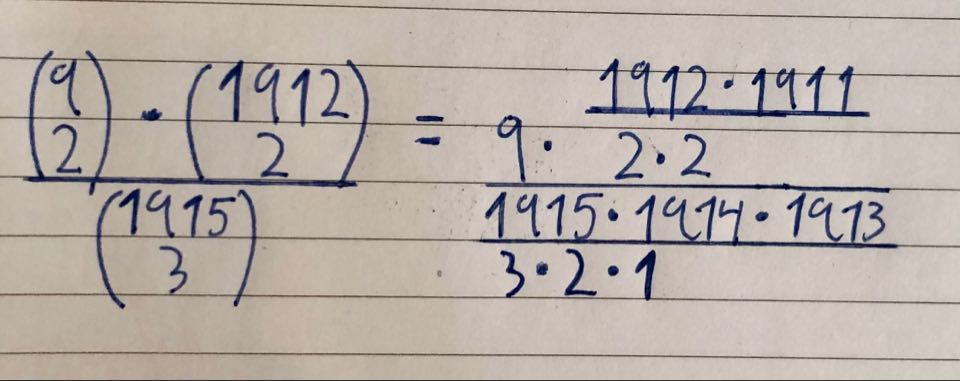 (9 2) · (1912 2) / (1915 3) = 9 · (1912 · 1911 / 2 · 2) / (1915 · 1914 · 1913 / 3 · 2 · 1)